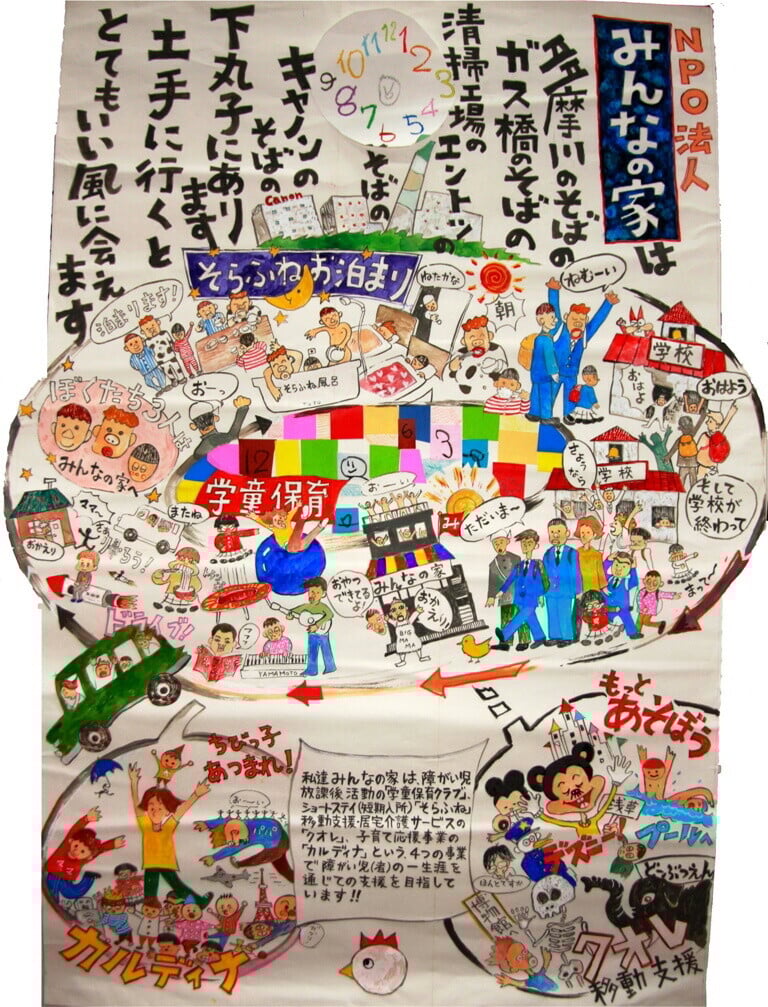 NPO法人
みんなの家は
多摩川のそばの
ガス橋のそばの
清掃工場の
エントツの
そばの
キヤノンの
そばの
下丸子にあり
ます
土手に行くと
とてもいい風に会え
ます
12
1
2
3
4
5
6
7
8
9
10
11
Canon
そらふねお泊まり
泊まります!
ねたかな
朝
ねむーい
学校
おはよ
おはよう
そらふね風呂
おーっ
ぼくたち3人は
みんなの家へ
12
6
3
学童保育
おーーい
み
ただいま〜
さようなら
学校
そして
学校が
終わって
まって!
おかえり
ママー
またね
みんなの家
おかえり
おやつ
できてる
よ!
BIG
MAMA
YAMAMOTO
ドライブ!
ちびっ子
あつまれ!
おーい
ママ
パパ
カルディナ
私達みんなの家は、障がい児
放課後活動の「学童保育クラブ」、
ショートステイ(短期入所)「そらふね」
移動支援・居宅介護サービスの
「クオレ」、子育て応援事業の
「カルディナ」という、4つの事業
で障がい児(者)の一生涯を
通じての支援を目指して
います!!
もっと、
あそぼう
浅草
プールへ
ディズニー
ほんとですか
どうぶつえん
博物館
クオレ
移動支援